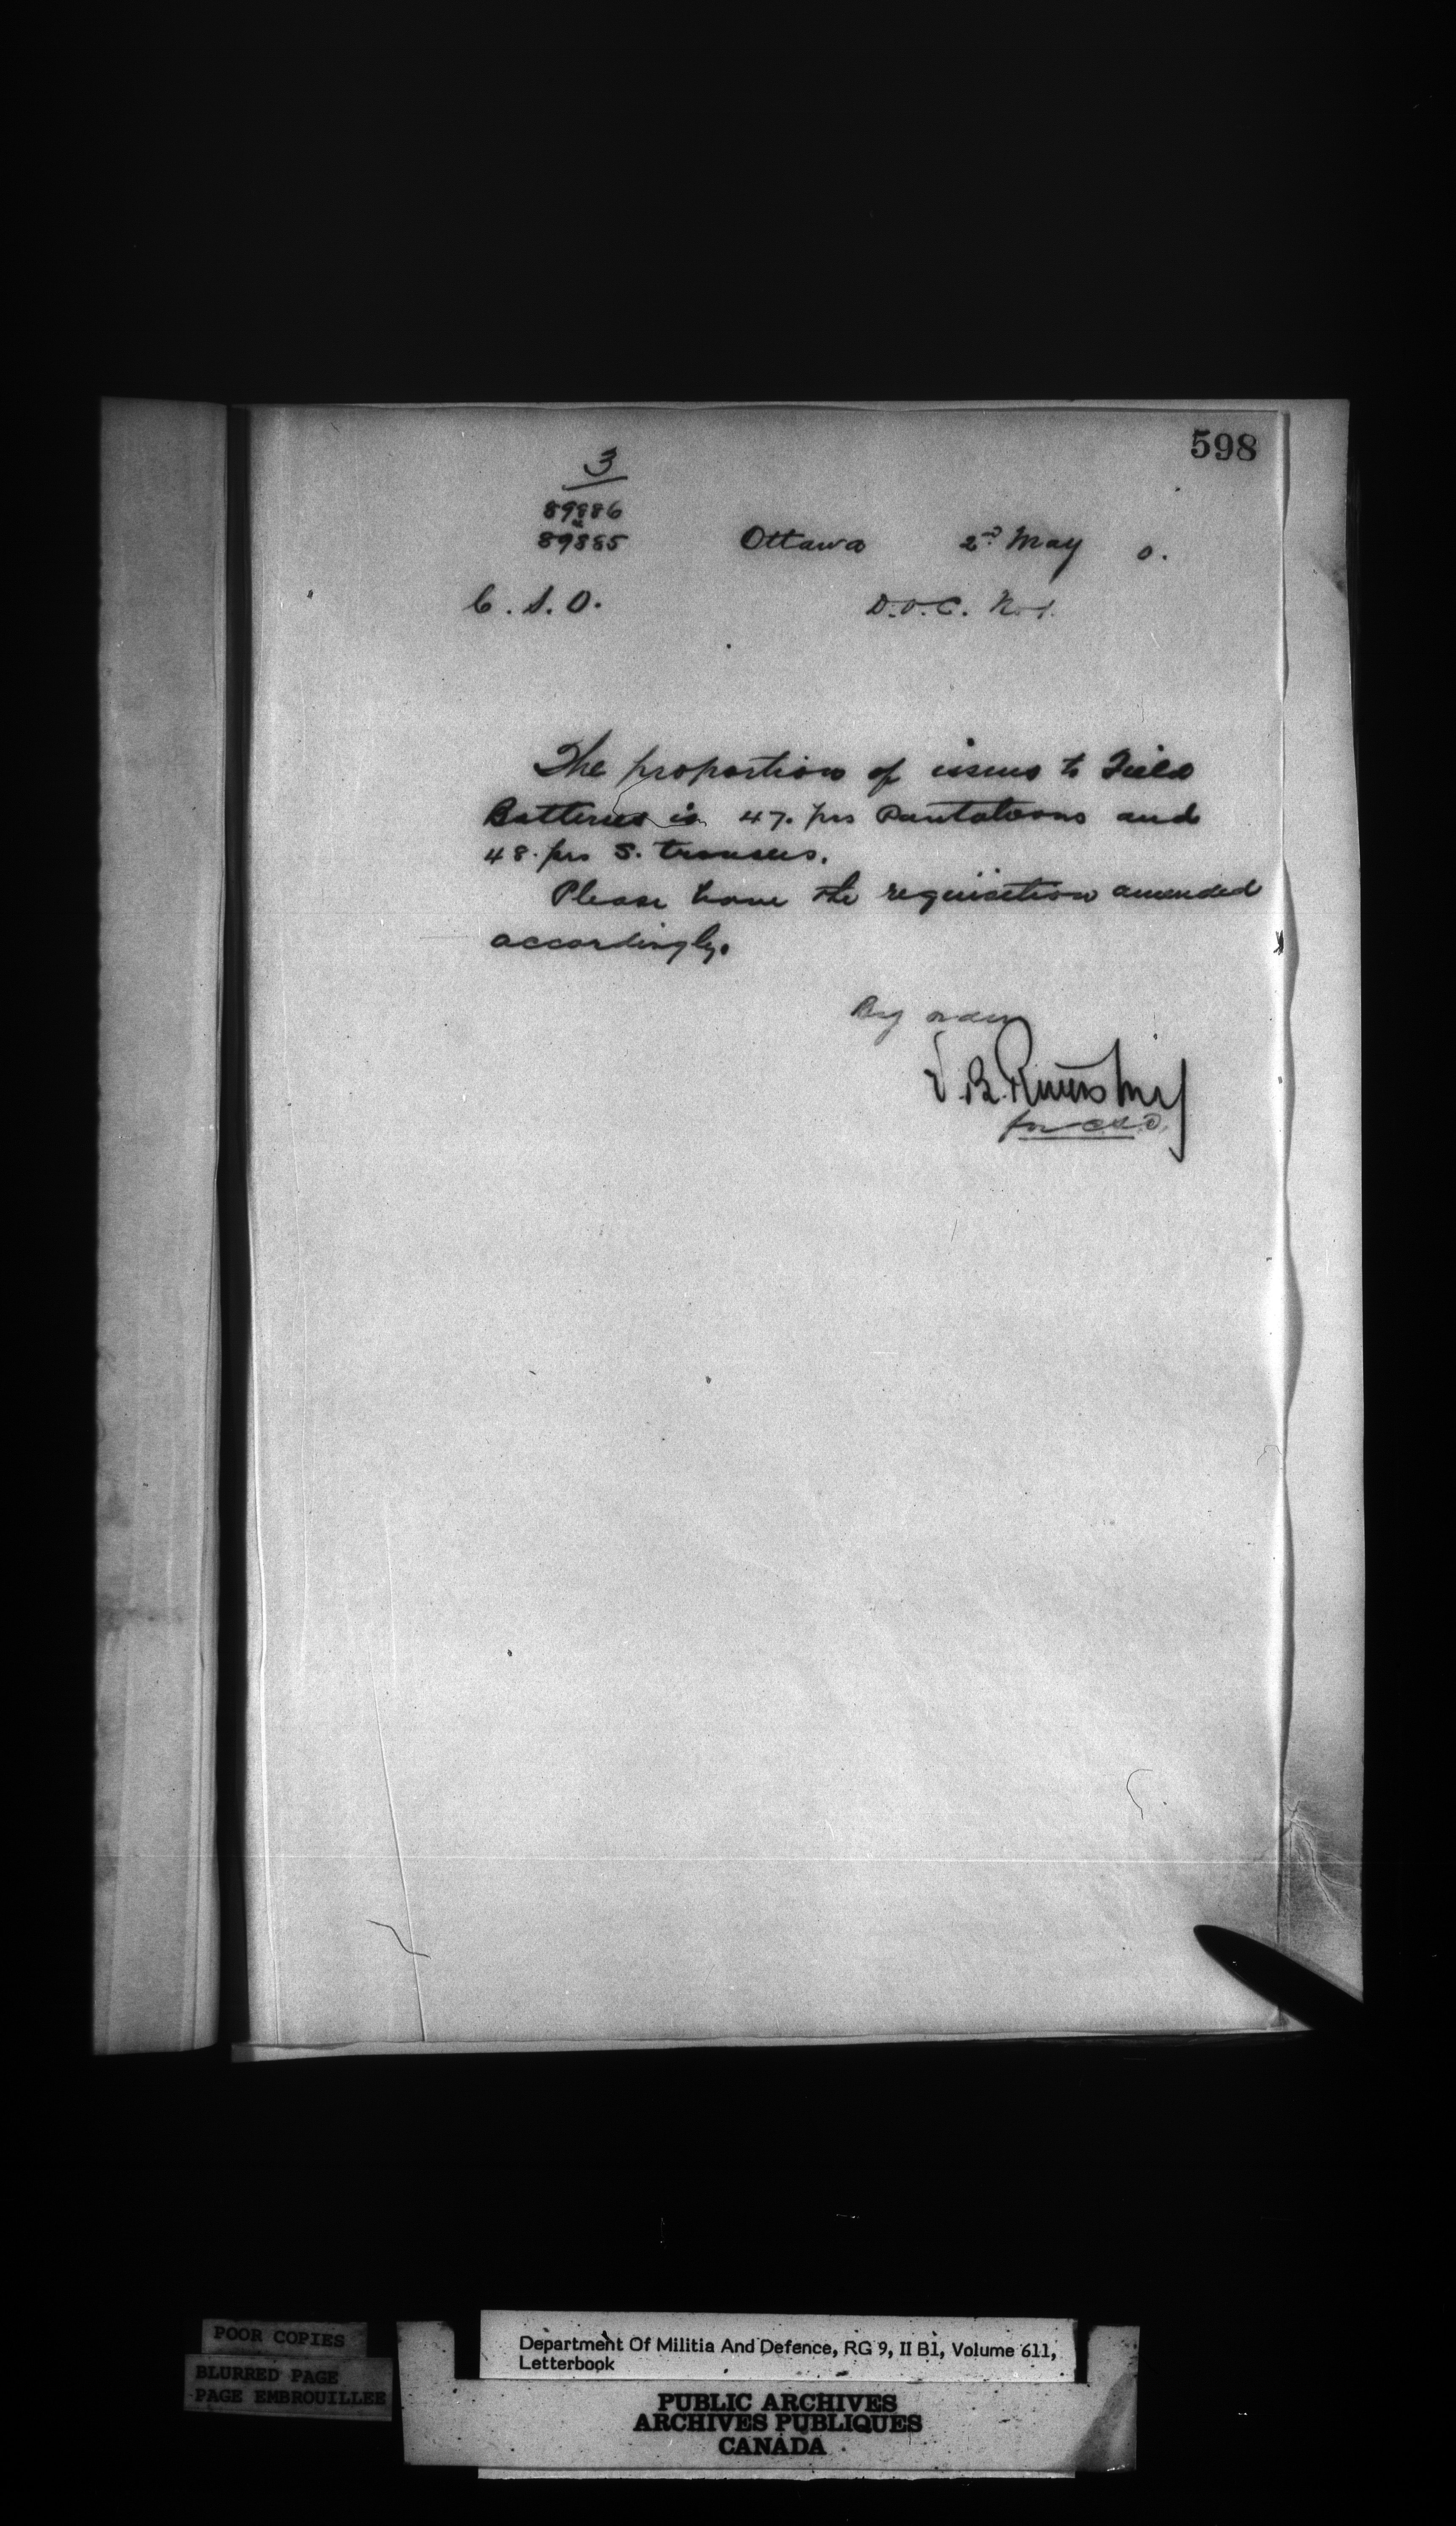 598
3
89886
89885
Ottawa 2nd May 0.
C. S. O. D.O.C. No 1.
The proportion of issues to Field
Batteries is 47. prs Pantaloons and
48. prs S. trousers.
Please have the requisition amended
accordingly.
By order
V.B. Rivers Maj
for C.S.O.
POOR COPIES
BLURRED PAGE
PAGE EMBROUILLEE
Department Of Militia And Defence, RG 9, II B1, Volume 611,
Letterbook
PUBLIC ARCHIVES
ARCHIVES PUBLIQUES
CANADA